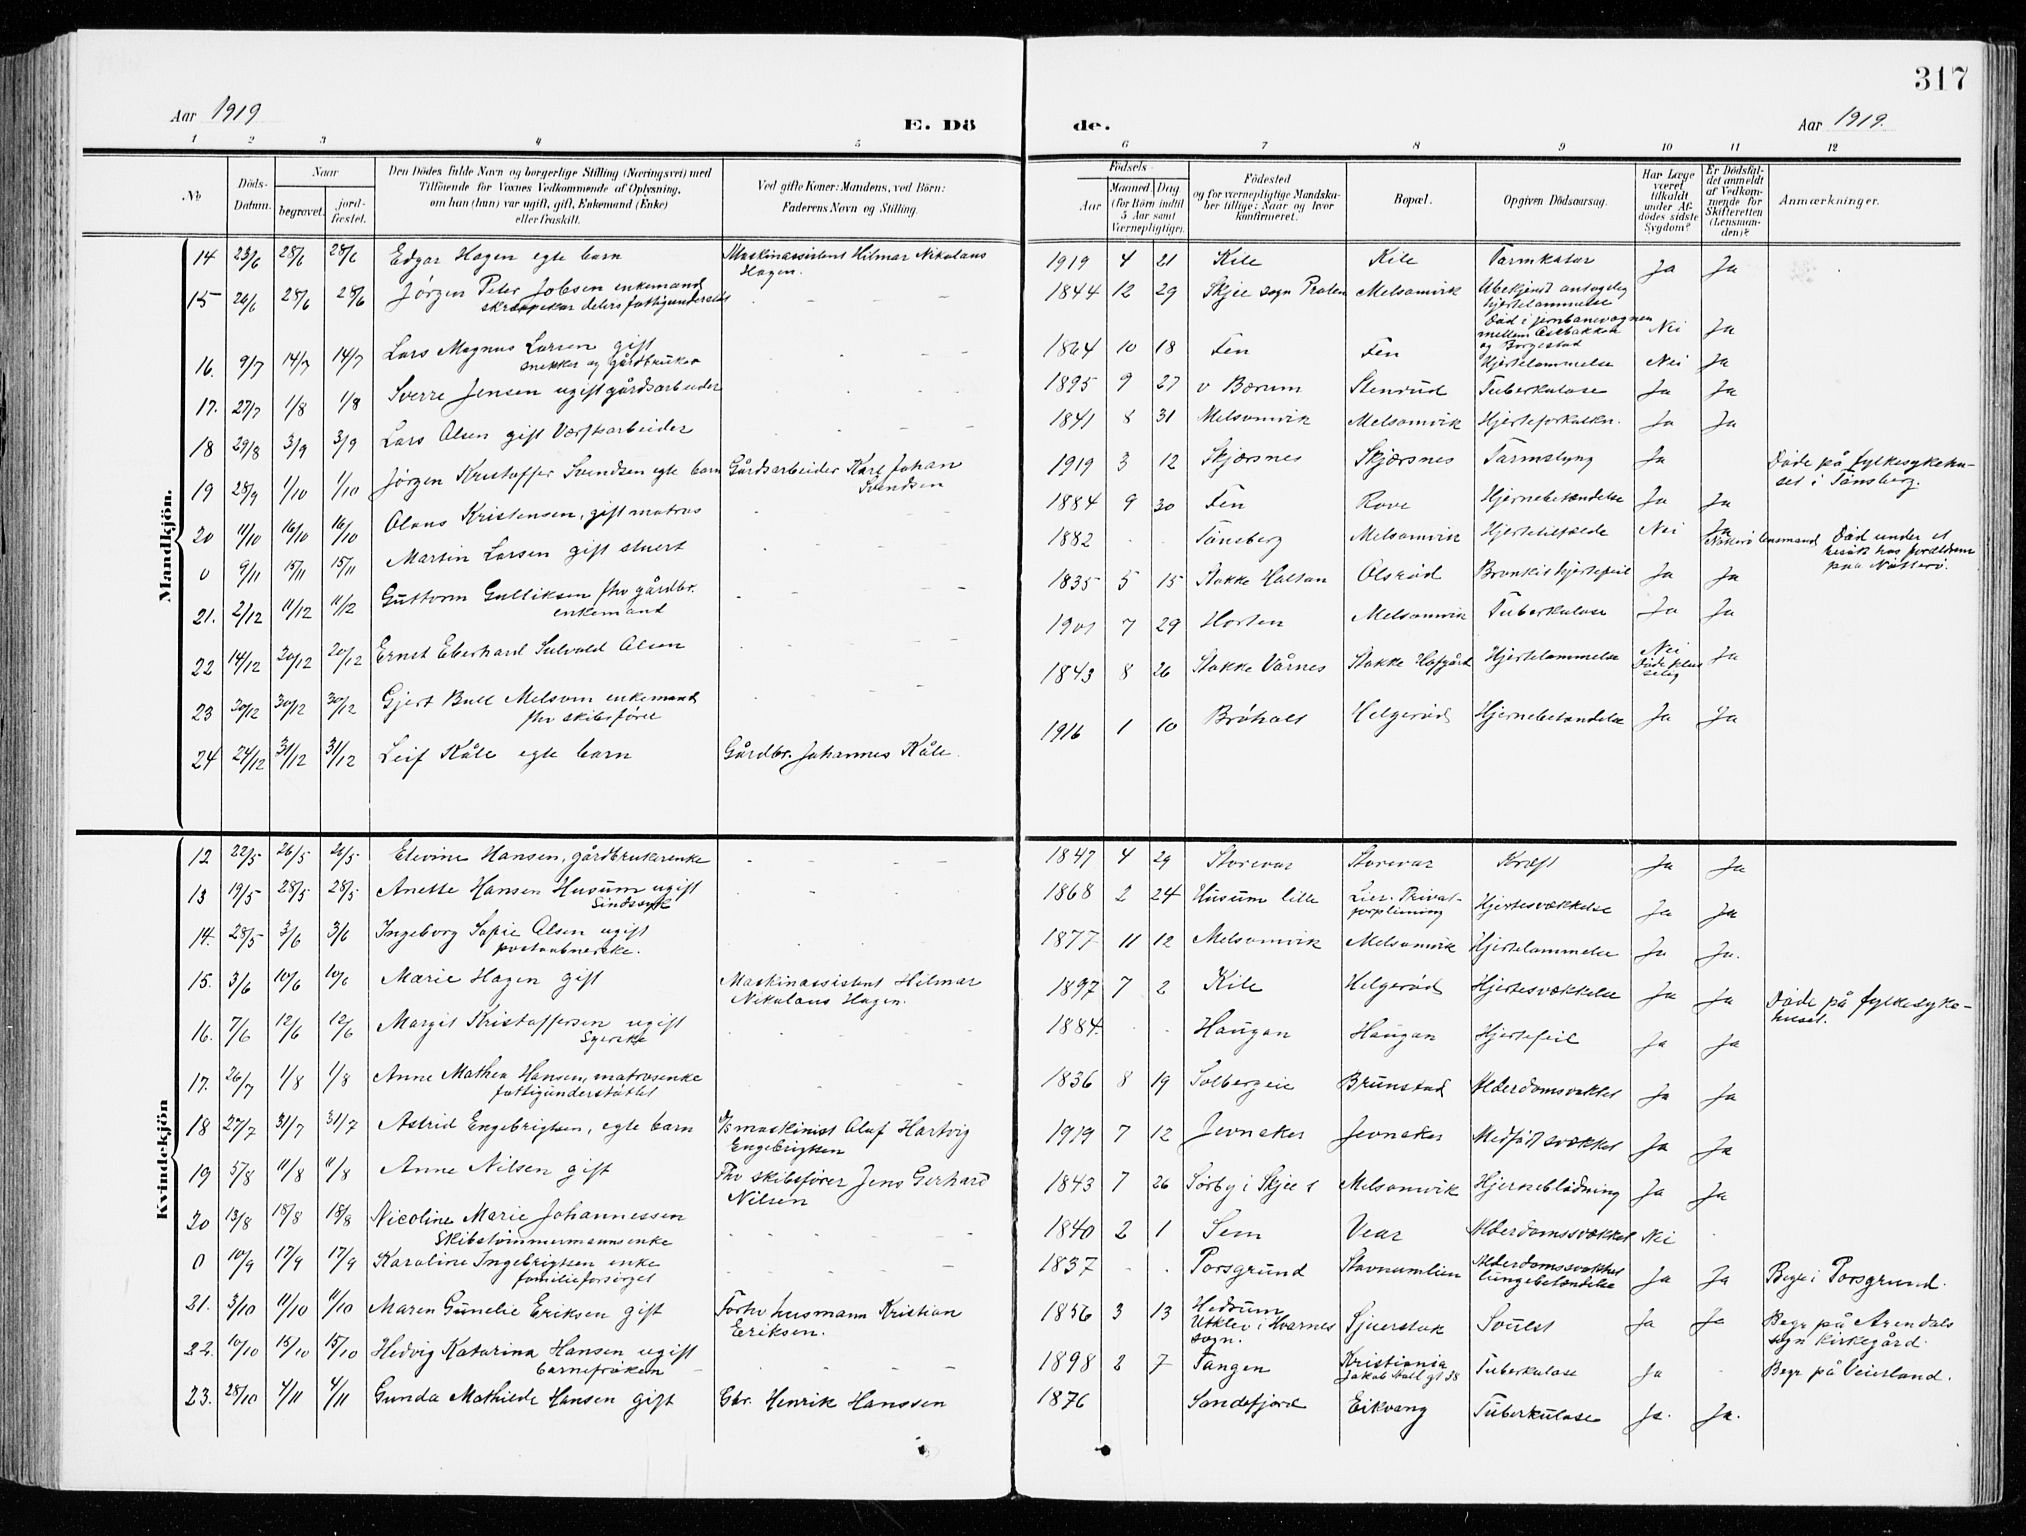 317
Aar 1919
E. Dö
de.
Aar 1919.
1 2 3 4 5 6 7 8 9 10 11 12
No
Döds-Datum.
Naar
begravet.
jord-fæstet.
Den Dödes fulde Navn og borgerlige Stilling (Næringsvei) med
Tilföiende for Voxnes Vedkommende af Oplysning,
om han (hun) var ugift, gift, Enkemand (Enke)
eller fraskilt.
Ved gifte Koner: Mandens, ved Börn:
Faderens Navn og Stilling.
Födsels-
Aar
Maaned. Dag
(for Börn indtil
5 Aar samt
Værnepligtige).
Födested
og for værnepligtige Mandska-
ber tillige: Naar og hvor
konfirmeret.
Bopæl.
Opgiven Dödsaarsag.
Har Læge
været
tilkaldt
under Af-
dödes sidste
Sygdom?
Er Dödsfal-
det anmeldt
af Vedkom-
mende for
Skifteretten
(Lensman-
den)?
Anmærkninger.
Mandkjön.
14 23/6 28/6 28/6 Edgar Hagen egte barn Maskinassistent Hilmar Nikolaus Hagen. 1919 4 21 Kile Kile Tarmkatar Ja Ja
15 26/6 28/6 28/6 Jörgen Peter Jobsen enkemand 1844 12 29 Melsomvik Ubekjendt antagelig hjertelammelse Nei Ja
16. 9/7 14/7 14/7 Lars Magnus Larsen gift snekker og gårdbruker 1864 10 18 Fen Fen Död i jernbanevognen mellem og Borgestad Hjertelammelse Nei Ja
17. 27/7 1/8 1/8 Sverre Jensen ugift gårdsarbeider 1895 9 27 v Bærum Stenrud Tuberkulose Ja Ja
18 29/8 3/9 3/9 Lars Olsen gift Værftsarbeider 1841 8 31 Melsomvik Melsomvik Hjerteforkalkn. Ja Ja
19 28/9 1/10 1/10 Jörgen Kristoffer Svendsen egte barn Gårdsarbeider Karl Johan Svendsen 1919 3 12 Skjærsnes Skjærsnes Tarmslyng Ja Döde på fylkesykehuset i Tönsberg.
20 11/10 16/10 16/10 Olaus Kristensen, gift matros 1884 9 30 Fen Rove Hjernebetændelse Ja Ja
0 9/11 15/11 15/11 Martin Larsen gift stuert 1882 Tönsberg Melsomvik Hjertetilfælde Nei Ja lensmand Död under et besök hos forældrene paa Nötterö.
21. 2/12 11/12 11/12 Guttorm Gulliksen fhv gårdbr. enkemand 1835 5 15 Stokke Holtan Olsröd Bronkit hjertefeil Ja Ja
22 14/12 20/12 20/12 Ernst Eberhard Olsen 1901 7 29 Horten Melsomvik Tuberkulose Ja Ja
23 20/12 30/12 30/12 Gjert Bull Melsom enkemand fhv skibsförer 1843 8 26 Stokke Vårnes Stokke Hofgård Hjertelammelse Nei Döde pludselig Ja
24 24/12 31/12 31/12 Leif Kåle egte barn Gårdbr. Johannes Kåle. 1916 1 10 Helgeröd Hjernebetændelse Ja Ja
Kvindekjön
12 22/5 26/5 26/5 Elevine Hansen, gårdbrukerenke 1847 4 29 Storevar Storevar Kræft Ja Ja
13 19/5 28/5 28/5 Anette Hansen Husum ugift Sindssyk 1868 2 24 Husum lille Lier. Privatforpleining Hjertesvækkelse Ja Ja
14. 28/5 3/6 3/6 Ingeborg Sofie Olsen ugift postaabnerske. 1877 11 12 Melsomvik Melsomvik Hjertelammelse Ja Ja.
15. 3/6 10/6 10/6 Marie Hagen gift Maskinassistent Hilmar Nikolaus Hagen. 1897 7 2 Kile Helgeröd Hjertesvækkelse Ja Ja Döde på fylkesykehuset.
16. 7/6 12/6 12/6 Margit Kristoffersen ugift Syerske 1884. Haugan Haugan Hjertefeil Ja Ja
17. 26/7 1/8 1/8 Anne Mathea Hansen, matrosenke fattigunderstöttet 1836 8 19 Solbergeie Brunstad Alderdomsvækkel Ja Ja
18 27/7 31/7 31/7 Astrid Engebrigtsen, egte barn maskinist Olaf Hartvig Engebrigtsen 1919 7 12 Jevnaker Jevnaker Medfödt svækkel Ja Ja
19 5/8 11/8 11/8 Anne Nilsen gift Fhv skibsförer Jens Gerhard Nilsen 1843 7 26 Sörby i Skjee s Melsomvik Hjerneblödning Ja Ja
20 13/8 18/8 18/8 Nicoline Marie Johannessen Skibstömmermannsenke 1840 2 1 Sem Vear Alderdomssvækkel Nei
0 10/9 17/9 17/9 Karoline Ingebrigtsen enke familieforsörget 1837 Porsgrund Stavnumlien Alderdomssvækkel lungebetændelse Ja Ja Begr i Porsgrund.
21. 3/10 11/10 11/10 Maren Gunelie Eriksen gift Forhv husmann Kristian Eriksen. 1856 3 13 Hedrum Utklev i Hvarnes sogn. Svulst Ja Ja Begr på Arendals sogn kirkegård.
22. 10/10 15/10 15/10 Hedvig Katarina Hansen ugift barnefröken 1898 2 7 Tangen Kristiania Jakob Hall gt 38 Tuberkulose Ja Begr på Veierland.
23. 28/10 4/11 4/11 Gunda Mathilde Hansen gift Gbr. Henrik Hanssen 1876 Sandefjord Eikvang Tuberkulose Ja. Ja.